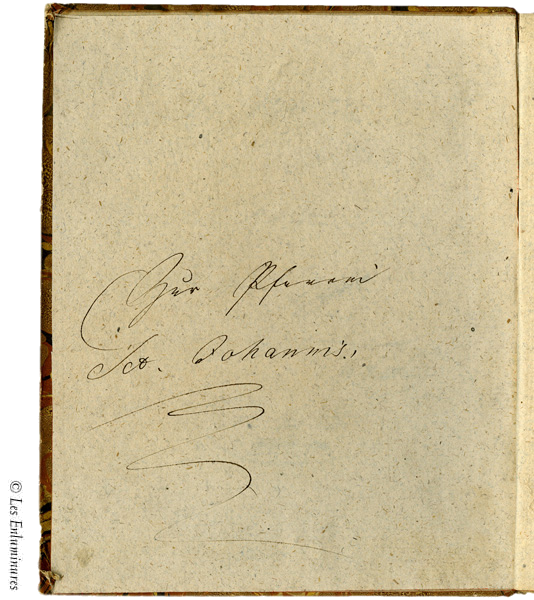 Zur Pfarrei
Sct. Johannis.,
© Les Enluminures